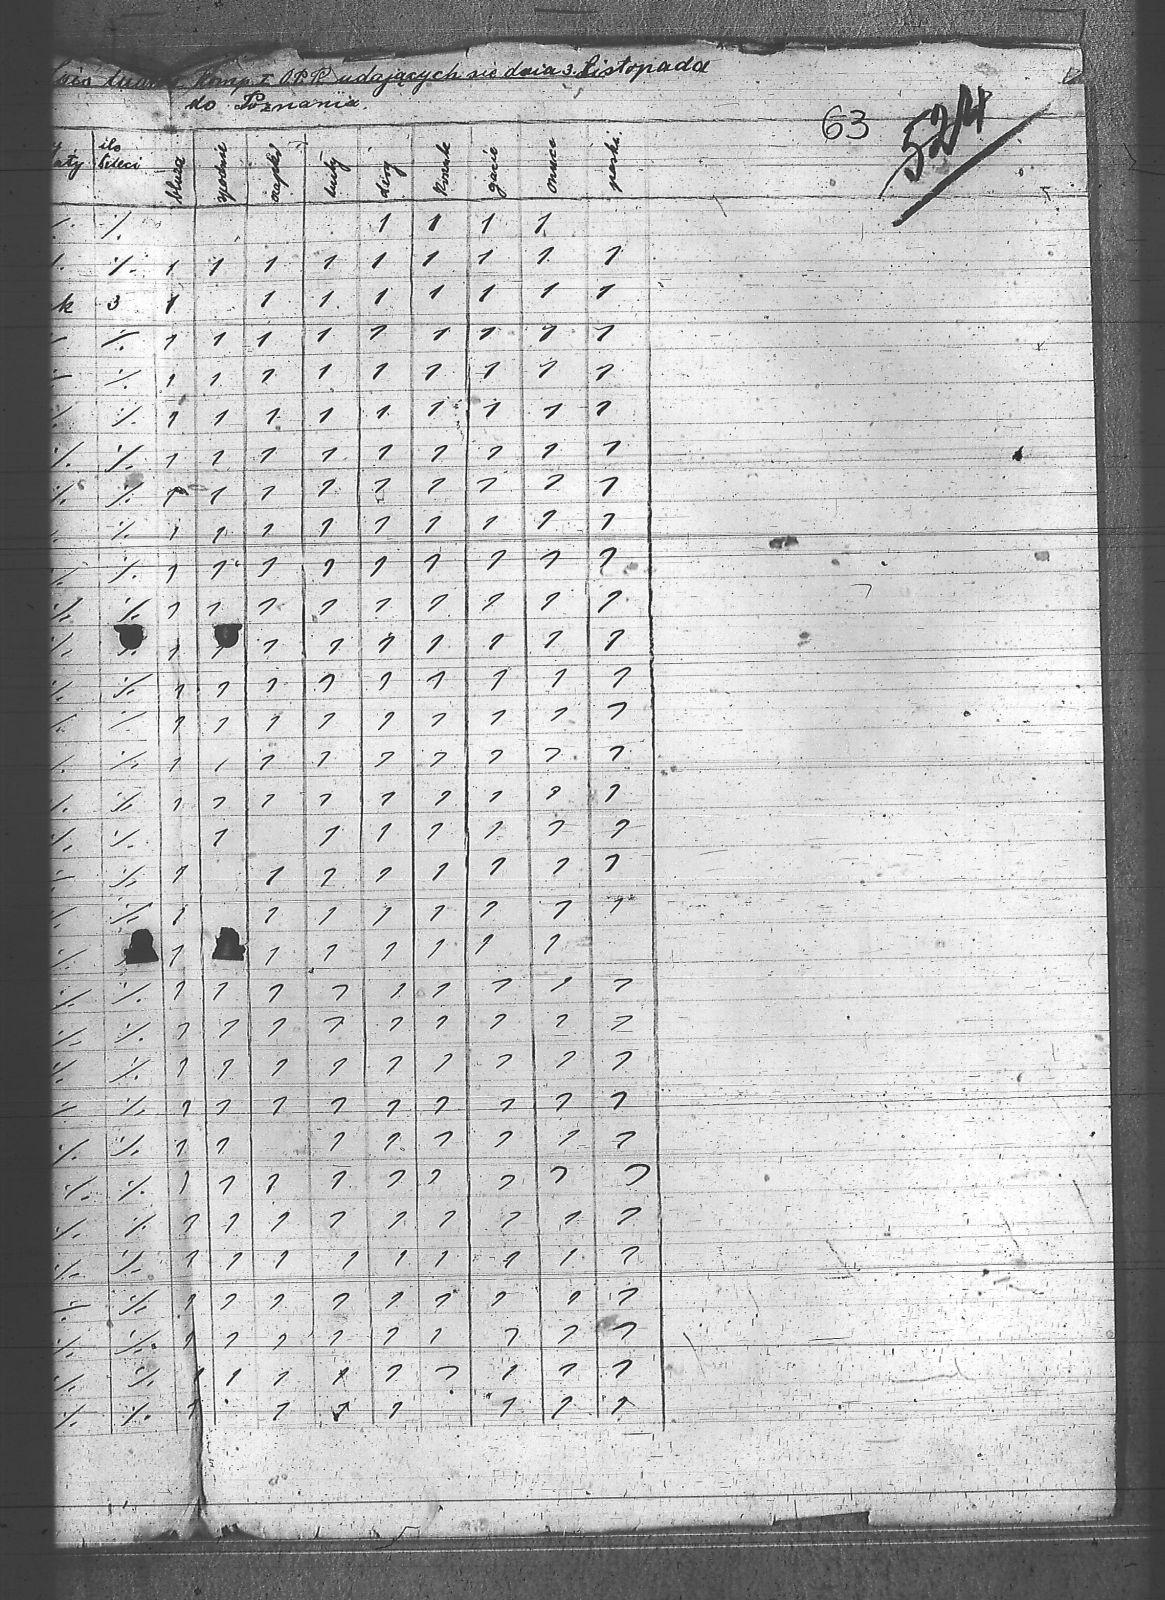 Komp. I. O.P.P. udających się dnia 3. Listopada
do Poznania.
63
524
ilo dzieci bluza spodnie czapka buty koszule gacie onuce paski
/. /. 1 1 1 1
/. /. 1 1 1 1 1 1 1 1 1
k 3 1 1 1 1 1 1 1 1
/. /. 1 1 1 1 1 1 1 1 1
/. /. 1 1 1 1 1 1 1 1 1
/. /. 1 1 1 1 1 1 1 1 1
/. /. 1 1 1 1 1 1 1 1 1
/. /. 1 1 1 1 1 1 1 1 1
/. /. 1 1 1 1 1 1 1 1 1
/. /. 1 1 1 1 1 1 1 1 1
/. /. 1 1 1 1 1 1 1 1 1
/. /. 1 1 1 1 1 1 1 1 1
/. /. 1 1 1 1 1 1 1 1 1
/. /. 1 1 1 1 1 1 1 1 1
/. /. 1 1 1 1 1 1 1 1 1
/. /. 1 1 1 1 1 1 1 1 1
/. /. 1 1 1 1 1 1 1
/. /. 1 1 1 1 1 1 1 1
/. /. 1 1 1 1 1 1 1 1
/. /. 1 1 1 1 1 1 1
/. /. 1 1 1 1 1 1 1 1 1
/. /. 1 1 1 1 1 1 1 1 1
/. /. 1 1 1 1 1 1 1 1 1
/. /. 1 1 1 1 1 1 1 1 1
/. /. 1 1 1 1 1 1 1 1
/. /. 1 1 1 1 1 1 1 1 1
/. /. 1 1 1 1 1 1 1 1 1
/. /. 1 1 1 1 1 1 1 1 1
/. /. 1 1 1 1 1 1 1 1 1
/. /. 1 1 1 1 1 1 1 1 1
/. /. 1 1 1 1 1 1 1 1 1
/. /. 1 1 1 1 1 1 1